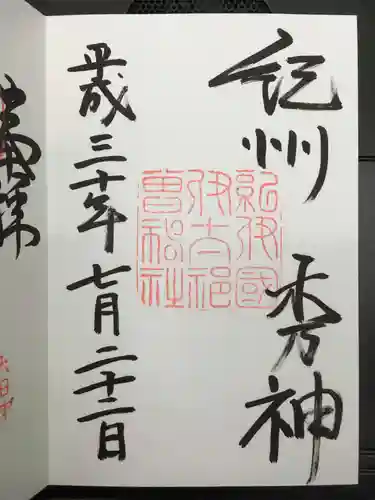 紀州 木乃神
紀伊國
伊太祁
曾神社
平成三十年七月二十二日